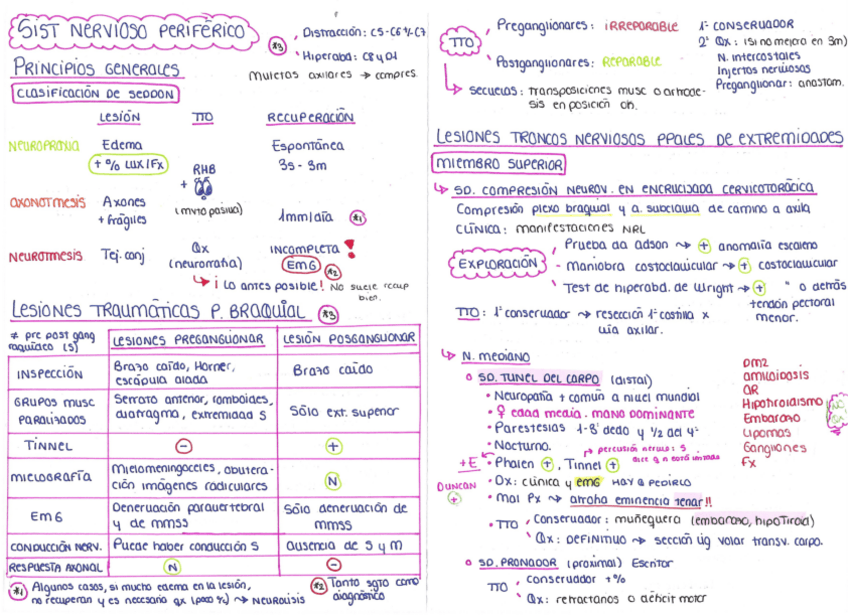 SIST NERVIOSO PERIFÉRICO
*3
Distracción: C5-C6+/-C7
Hiperabd: C8 y D1
Muletas axilares → compres.
PRINCIPIOS GENERALES
CLASIFICACIÓN DE SEDDON
LESIÓN TTO RECUPERACIÓN
NEUROPRAXIA Edema Espontánea
+ % LUX/Fx 3s - 3m
RHB
+
(mvto pasivo)
AXONOTMESIS Axones 1mm/día *1
+ frágiles
NEUROTMESIS Tej. conj Qx INCOMPLETA !
(neurorrafia) EMG *2
↳ ¡Lo antes posible! No suele recup bien.
LESIONES TRAUMÁTICAS P. BRAQUIAL *3
≠ pre post gang raquídeo (S) LESIONES PREGANGLIONAR LESIÓN POSGANGLIONAR
INSPECCIÓN Brazo caído, Horner, escápula alada Brazo caído
GRUPOS MUSC PARALIZADOS Serrato anterior, romboides, diafragma, extremidad S Sólo ext. superior
TINNEL - +
MIELOGRAFÍA Mielomeningoceles, obliteración imágenes radiculares N
EMG Denervación paravertebral y de mmss Sólo denervación de mmss
CONDUCCIÓN NERV. Puede haber conducción S Ausencia de S y M
RESPUESTA AXONAL N -
*1 Algunos casos, si mucho edema en la lesión, no recuperan y es necesario qx (poco %) → NEUROLISIS
*2 Tanto sgto como diagnóstico
TTO
Preganglionares: IRREPARABLE
Postganglionares: REPARABLE
1º CONSERVADOR
2º Qx: (si no mejora en 3m)
N. intercostales
Injertos nerviosos
Preganglionar: anastom.
↳ secuelas: transposiciones musc o artrodesis en posición
LESIONES TRONCOS NERVIOSOS PPALES DE EXTREMIDADES
MIEMBRO SUPERIOR
↳ SD. COMPRESIÓN NEUROV. EN ENCRUCIJADA CERVICOTORÁCICA
Compresión plexo braquial y a. subclavia de camino a axila
CLÍNICA: manifestaciones NRL
EXPLORACIÓN
Prueba de adson → + anomalía escaleno
- Maniobra costoclavicular → + costoclavicular
Test de hiperabd. de Wright → + " o detrás tendón pectoral menor.
TTO: 1º conservador → resección 1ª costilla x vía axilar.
↳ N. MEDIANO
SD. TUNEL DEL CARPO (distal)
• Neuropatía + común a nivel mundial
• ♀ edad media. mano dominante
• Parestesias 1-3º dedo y 1/2 del 4º
• Nocturno.
→ percusión nervio: S
+E • Phalen +, Tinnel +
DUNCAN +
• Dx: clínica y EMG HAY Q PEDIRLO
• Mal Px → atrofia eminencia tenar!!
• TTO Conservador: muñequera (embarazo, hipotiroid)
Qx: DEFINITIVO → sección lig volar transv. carpo.
DM2
amiloidosis
AR
Hipotiroidismo
Embarazo
Lipomas
Gangliones
Fx
SD. PRONADOR (proximal) Escritor
TTO Conservador +%
Qx: refractarios o déficit motor